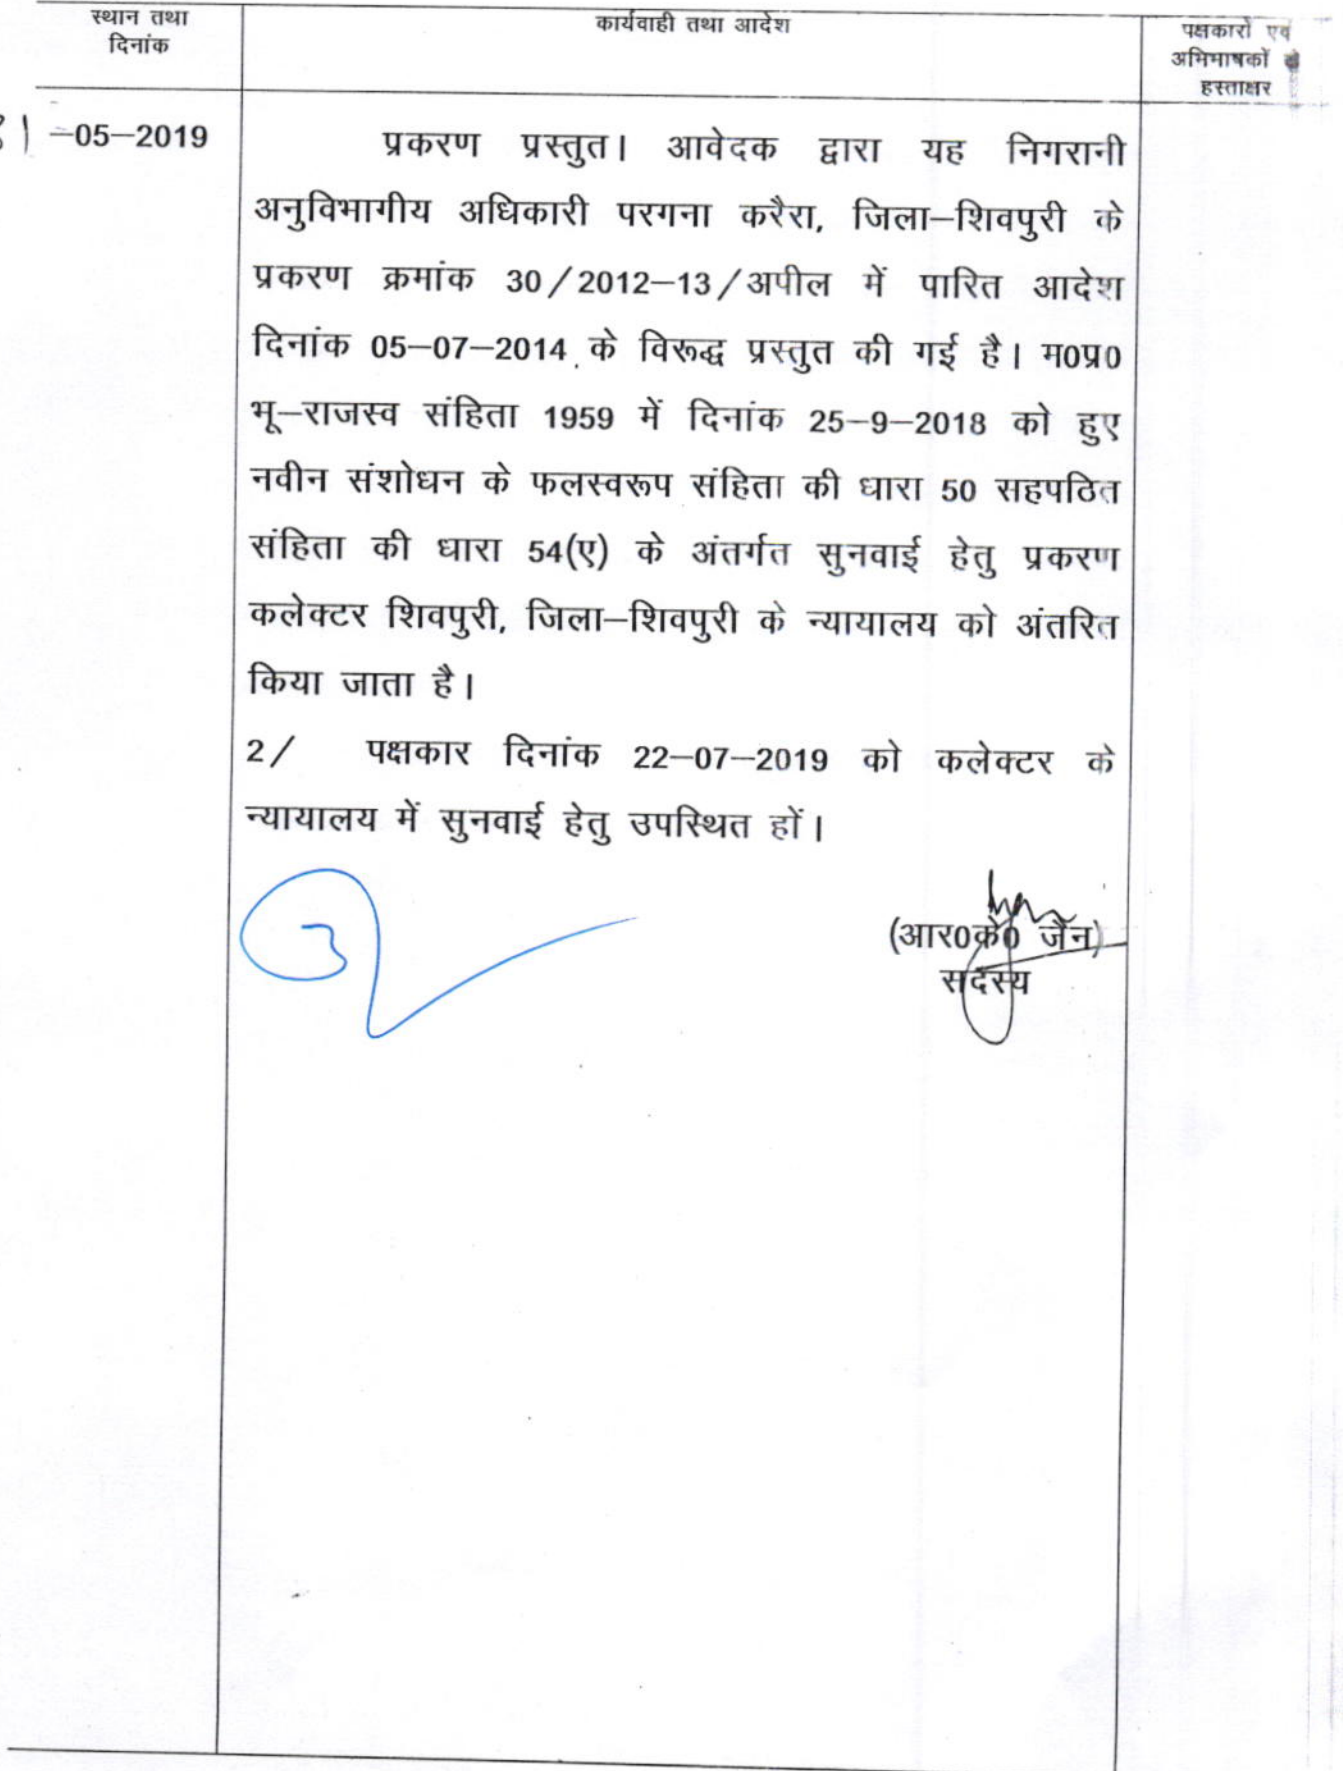 स्थान तथा
दिनांक
कार्यवाही तथा आदेश
पक्षकारों एवं
अभिभाषकों के
हस्ताक्षर
-05-2019
प्रकरण प्रस्तुत। आवेदक द्वारा यह निगरानी
अनुविभागीय अधिकारी परगना करैरा, जिला-शिवपुरी के
प्रकरण क्रमांक 30/2012-13/अपील में पारित आदेश
दिनांक 05-07-2014 के विरूद्ध प्रस्तुत की गई है। म0प्र0
भू-राजस्व संहिता 1959 में दिनांक 25-9-2018 को हुए
नवीन संशोधन के फलस्वरूप संहिता की धारा 50 सहपठित
संहिता की धारा 54(ए) के अंतर्गत सुनवाई हेतु प्रकरण
कलेक्टर शिवपुरी, जिला-शिवपुरी के न्यायालय को अंतरित
किया जाता है।
2/ पक्षकार दिनांक 22-07-2019 को कलेक्टर के
न्यायालय में सुनवाई हेतु उपस्थित हों।
(आर0के0 जैन)
सदस्य